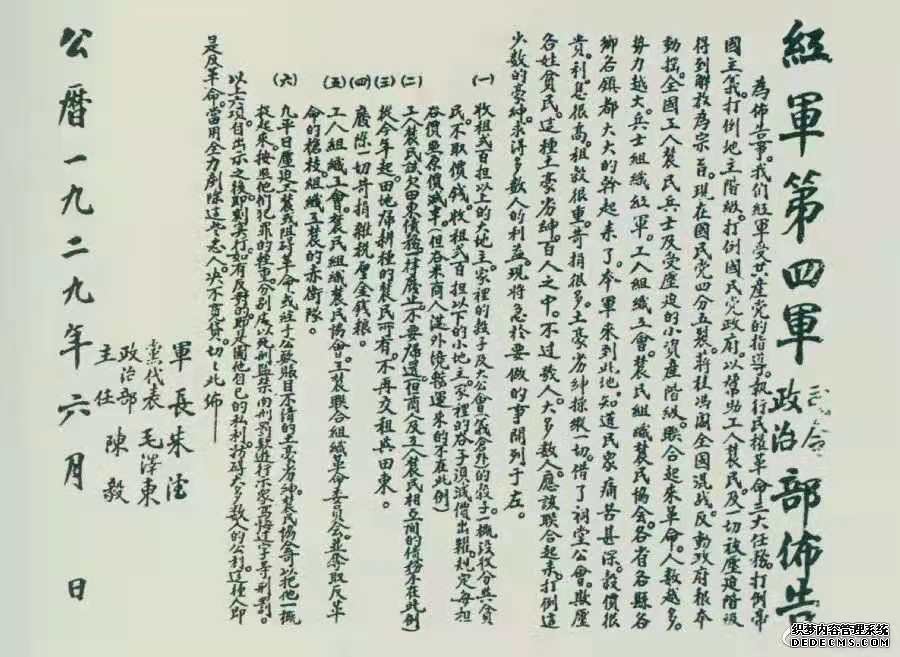 紅軍第四軍司令政治部佈告
為佈告事。我們紅軍受共產黨的指導。執行民權革命三大任務。打倒帝
國主義。打倒地主階級。打倒國民黨政府。以幫助工人農民。及一切被壓迫階級
得到解放為宗旨。現在國民黨四分五裂。蔣桂馮閻全國混戰。反動政府根本
動搖。全國工人農民兵士及受壓迫的小資產階級。聯合起來革命。人數越多。
勢力越大。兵士組織紅軍。工人組織工會。農民組織農民協會。各省各縣各
鄉各鎮都大大的幹起來了。本軍來到此地。知道民家痛苦甚深。穀價很
貴。利息很高。租穀很重。苛捐很多。土豪劣紳採繳一切。借了祠堂公會。欺壓
各姓貧民。這種土豪劣紳。百人之中。不過數人。大多數人。應該聯合起來。打倒這
少數的豪紳。求得多數人的利益。現將急於要做的事開列于左。
(一) 收租貳百担以上的大地主。家裡的穀子及大公會(義倉外)的穀子。一概沒收分與貧
民。不取價錢。收租貳百担以下的小地主。家裡的谷子須減價出糶。規定每担
谷價照原價減半(但谷米商人從外境輸運來的不在此例)
(二) 工人農民該欠田東債務。一律廢止。不要歸還。(但商人及工人農民相互間的債務不在此例)
(三) 從今年起。田地歸耕種的農民所有。不再交租與田東。
(四) 廢除一切苛捐雜稅厘金錢糧。
(五) 工人組織工會。農民組織農民協會。工農聯合組織革命委員會。並奪取反革
命的槍枝。組織工農的赤衛隊。
(六) 凡平日壓迫工農或阻碍革命。或經手公款賬目不清的土豪劣紳。農民協會可以把他一概
捉起來。按照他們犯罪的輕重。分別處以死刑監禁肉刑罰款遊行示家寫悔过字等刑罰。
以上六項自出示之後。即刻实行。如有反對的。即是圖他自已的私利。妨碍大多數人的公利。這種人即
是反革命。當用全力剷除這些志人。決不寬貸。切切此佈
軍長 朱德
黨代表 毛澤東
政治部主任 陳毅
公曆一九二九年六月 日
织梦内容管理系统
DEDECMS.COM